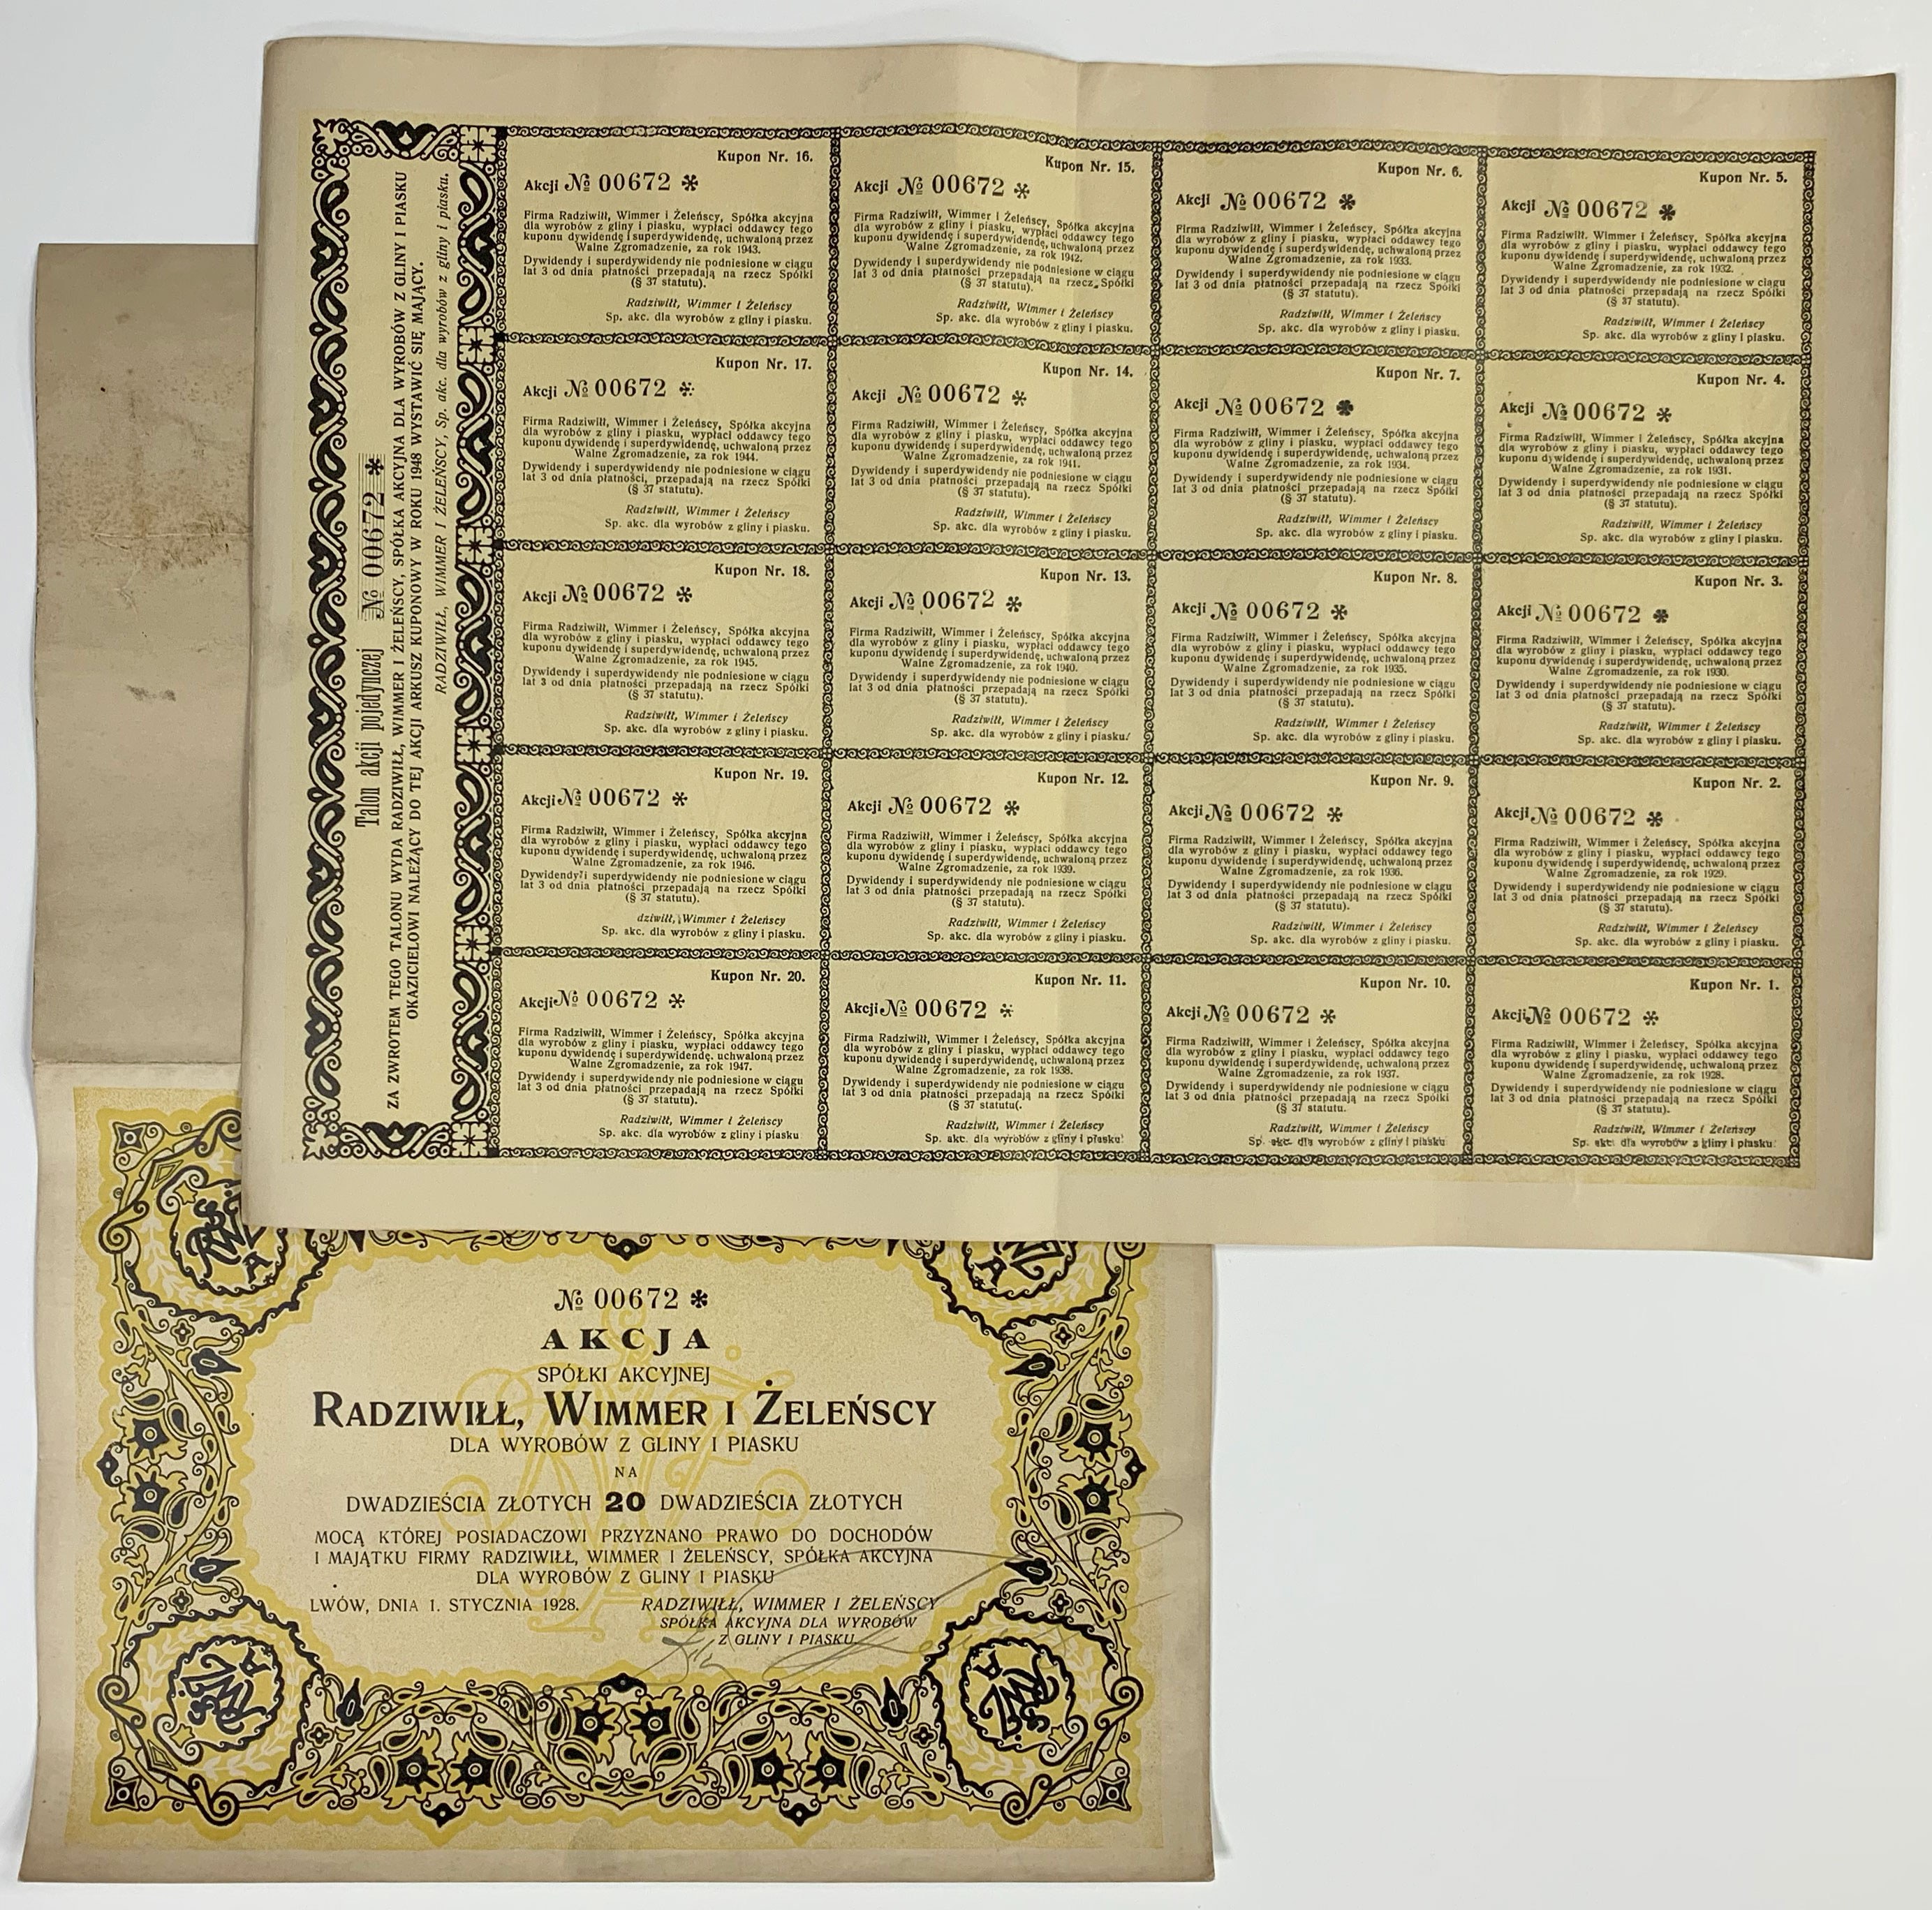 Talon akcji pojedynczej № 00672 *
ZA ZWROTEM TEGO TALONU WYDA RADZIWIŁŁ, WIMMER I ŻELEŃSCY, SPÓŁKA AKCYJNA DLA WYROBÓW Z GLINY I PIASKU
OKAZICIELOWI NALEŻĄCY DO TEJ AKCJI ARKUSZ KUPONOWY W ROKU 1948 WYSTAWIĆ SIĘ MAJĄCY.
RADZIWIŁŁ, WIMMER I ŻELEŃSCY, Sp. akc. dla wyrobów z gliny i piasku.
Kupon Nr. 16.
Akcji № 00672 *
Firma Radziwiłł, Wimmer i Żeleńscy, Spółka akcyjna
dla wyrobów z gliny i piasku, wypłaci oddawcy tego
kuponu dywidendę i superdywidendę, uchwaloną przez
Walne Zgromadzenie, za rok 1943.
Dywidendy i superdywidendy nie podniesione w ciągu
lat 3 od dnia płatności przepadają na rzecz Spółki
(§ 37 statutu).
Radziwiłł, Wimmer i Żeleńscy
Sp. akc. dla wyrobów z gliny i piasku.
Kupon Nr. 15.
Akcji № 00672 *
Firma Radziwiłł, Wimmer i Żeleńscy, Spółka akcyjna
dla wyrobów z gliny i piasku, wypłaci oddawcy tego
kuponu dywidendę i superdywidendę, uchwaloną przez
Walne Zgromadzenie, za rok 1942.
Dywidendy i superdywidendy nie podniesione w ciągu
lat 3 od dnia płatności przepadają na rzecz Spółki
(§ 37 statutu).
Radziwiłł, Wimmer i Żeleńscy
Sp. akc. dla wyrobów z gliny i piasku.
Kupon Nr. 6.
Akcji № 00672 *
Firma Radziwiłł, Wimmer i Żeleńscy, Spółka akcyjna
dla wyrobów z gliny i piasku, wypłaci oddawcy tego
kuponu dywidendę i superdywidendę, uchwaloną przez
Walne Zgromadzenie, za rok 1933.
Dywidendy i superdywidendy nie podniesione w ciągu
lat 3 od dnia płatności przepadają na rzecz Spółki
(§ 37 statutu).
Radziwiłł, Wimmer i Żeleńscy
Sp. akc. dla wyrobów z gliny i piasku.
Kupon Nr. 5.
Akcji № 00672 *
Firma Radziwiłł, Wimmer i Żeleńscy, Spółka akcyjna
dla wyrobów z gliny i piasku, wypłaci oddawcy tego
kuponu dywidendę i superdywidendę, uchwaloną przez
Walne Zgromadzenie, za rok 1932.
Dywidendy i superdywidendy nie podniesione w ciągu
lat 3 od dnia płatności przepadają na rzecz Spółki
(§ 37 statutu).
Radziwiłł, Wimmer i Żeleńscy
Sp. akc. dla wyrobów z gliny i piasku.
Kupon Nr. 17.
Akcji № 00672 *
Firma Radziwiłł, Wimmer i Żeleńscy, Spółka akcyjna
dla wyrobów z gliny i piasku, wypłaci oddawcy tego
kuponu dywidendę i superdywidendę, uchwaloną przez
Walne Zgromadzenie, za rok 1944.
Dywidendy i superdywidendy nie podniesione w ciągu
lat 3 od dnia płatności, przepadają na rzecz Spółki
(§ 37 statutu).
Radziwiłł, Wimmer i Żeleńscy
Sp. akc. dla wyrobów z gliny i piasku.
Kupon Nr. 14.
Akcji № 00672 *
Firma Radziwiłł, Wimmer i Żeleńscy, Spółka akcyjna
dla wyrobów z gliny i piasku, wypłaci oddawcy tego
kuponu dywidendę i superdywidendę, uchwaloną przez
Walne Zgromadzenie, za rok 1941.
Dywidendy i superdywidendy nie podniesione w ciągu
lat 3 od dnia płatności przepadają na rzecz Spółki
(§ 37 statutu).
Radziwiłł, Wimmer i Żeleńscy
Sp. akc. dla wyrobów z gliny i piasku.
Kupon Nr. 7.
Akcji № 00672 *
Firma Radziwiłł, Wimmer i Żeleńscy, Spółka akcyjna
dla wyrobów z gliny i piasku, wypłaci oddawcy tego
kuponu dywidendę i superdywidendę, uchwaloną przez
Walne Zgromadzenie, za rok 1934.
Dywidendy i superdywidendy nie podniesione w ciągu
lat 3 od dnia płatności przepadają na rzecz Spółki
(§ 37 statutu).
Radziwiłł, Wimmer i Żeleńscy
Sp. akc. dla wyrobów z gliny i piasku.
Kupon Nr. 4.
Akcji № 00672 *
Firma Radziwiłł, Wimmer i Żeleńscy, Spółka akcyjna
dla wyrobów z gliny i piasku, wypłaci oddawcy tego
kuponu dywidendę i superdywidendę, uchwaloną przez
Walne Zgromadzenie, za rok 1931.
Dywidendy i superdywidendy nie podniesione w ciągu
lat 3 od dnia płatności przepadają na rzecz Spółki
(§ 37 statutu).
Radziwiłł, Wimmer i Żeleńscy
Sp. akc. dla wyrobów z gliny i piasku.
Kupon Nr. 18.
Akcji № 00672 *
Firma Radziwiłł, Wimmer i Żeleńscy, Spółka akcyjna
dla wyrobów z gliny i piasku, wypłaci oddawcy tego
kuponu dywidendę i superdywidendę, uchwaloną przez
Walne Zgromadzenie, za rok 1945.
Dywidendy i superdywidendy nie podniesione w ciągu
lat 3 od dnia płatności przepadają na rzecz Spółki
(§ 37 statutu).
Radziwiłł, Wimmer i Żeleńscy
Sp. akc. dla wyrobów z gliny i piasku.
Kupon Nr. 13.
Akcji № 00672 *
Firma Radziwiłł, Wimmer i Żeleńscy, Spółka akcyjna
dla wyrobów z gliny i piasku, wypłaci oddawcy tego
kuponu dywidendę i superdywidendę, uchwaloną przez
Walne Zgromadzenie, za rok 1940.
Dywidendy i superdywidendy nie podniesione w ciągu
lat 3 od dnia płatności przepadają na rzecz Spółki
(§ 37 statutu).
Radziwiłł, Wimmer i Żeleńscy
Sp. akc. dla wyrobów z gliny i piasku.
Kupon Nr. 8.
Akcji № 00672 *
Firma Radziwiłł, Wimmer i Żeleńscy, Spółka akcyjna
dla wyrobów z gliny i piasku, wypłaci oddawcy tego
kuponu dywidendę i superdywidendę, uchwaloną przez
Walne Zgromadzenie, za rok 1935.
Dywidendy i superdywidendy nie podniesione w ciągu
lat 3 od dnia płatności przepadają na rzecz Spółki
(§ 37 statutu).
Radziwiłł, Wimmer i Żeleńscy
Sp. akc. dla wyrobów z gliny i piasku.
Kupon Nr. 3.
Akcji № 00672 *
Firma Radziwiłł, Wimmer i Żeleńscy, Spółka akcyjna
dla wyrobów z gliny i piasku, wypłaci oddawcy tego
kuponu dywidendę i superdywidendę, uchwaloną przez
Walne Zgromadzenie, za rok 1930.
Dywidendy i superdywidendy nie podniesione w ciągu
lat 3 od dnia płatności przepadają na rzecz Spółki
(§ 37 statutu).
Radziwiłł, Wimmer i Żeleńscy
Sp. akc. dla wyrobów z gliny i piasku.
Kupon Nr. 19.
Akcji № 00672 *
Firma Radziwiłł, Wimmer i Żeleńscy, Spółka akcyjna
dla wyrobów z gliny i piasku, wypłaci oddawcy tego
kuponu dywidendę i superdywidendę, uchwaloną przez
Walne Zgromadzenie, za rok 1946.
Dywidendy i superdywidendy nie podniesione w ciągu
lat 3 od dnia płatności przepadają na rzecz Spółki
(§ 37 statutu).
dziwiłł, Wimmer i Żeleńscy
Sp. akc. dla wyrobów z gliny i piasku.
Kupon Nr. 12.
Akcji № 00672 *
Firma Radziwiłł, Wimmer i Żeleńscy, Spółka akcyjna
dla wyrobów z gliny i piasku, wypłaci oddawcy tego
kuponu dywidendę i superdywidendę, uchwaloną przez
Walne Zgromadzenie, za rok 1939.
Dywidendy i superdywidendy nie podniesione w ciągu
lat 3 od dnia płatności przepadają na rzecz Spółki
(§ 37 statutu).
Radziwiłł, Wimmer i Żeleńscy
Sp. akc. dla wyrobów z gliny i piasku.
Kupon Nr. 9.
Akcji № 00672 *
Firma Radziwiłł, Wimmer i Żeleńscy, Spółka akcyjna
dla wyrobów z gliny i piasku, wypłaci oddawcy tego
kuponu dywidendę i superdywidendę, uchwaloną przez
Walne Zgromadzenie, za rok 1936.
Dywidendy i superdywidendy nie podniesione w ciągu
lat 3 od dnia płatności przepadają na rzecz Spółki
(§ 37 statutu).
Radziwiłł, Wimmer i Żeleńscy
Sp. akc. dla wyrobów z gliny i piasku.
Kupon Nr. 2.
Akcji № 00672 *
Firma Radziwiłł, Wimmer i Żeleńscy, Spółka akcyjna
dla wyrobów z gliny i piasku, wypłaci oddawcy tego
kuponu dywidendę i superdywidendę, uchwaloną przez
Walne Zgromadzenie, za rok 1929.
Dywidendy i superdywidendy nie podniesione w ciągu
lat 3 od dnia płatności przepadają na rzecz Spółki
(§ 37 statutu).
Radziwiłł, Wimmer i Żeleńscy
Sp. akc. dla wyrobów z gliny i piasku.
Kupon Nr. 20.
Akcji № 00672 *
Firma Radziwiłł, Wimmer i Żeleńscy, Spółka akcyjna
dla wyrobów z gliny i piasku, wypłaci oddawcy tego
kuponu dywidendę i superdywidendę. uchwaloną przez
Walne Zgromadzenie, za rok 1947.
Dywidendy i superdywidendy nie podniesione w ciągu
lat 3 od dnia płatności przepadają na rzecz Spółki
(§ 37 statutu).
Radziwiłł, Wimmer i Żeleńscy
Sp. akc. dla wyrobów z gliny i piasku
Kupon Nr. 11.
Akcji № 00672 *
Firma Radziwiłł, Wimmer i Żeleńscy, Spółka akcyjna
dla wyrobów z gliny i piasku, wypłaci oddawcy tego
kuponu dywidendę i superdywidendę, uchwaloną przez
Walne Zgromadzenie, za rok 1938.
Dywidendy i superdywidendy nie podniesione w ciągu
lat 3 od dnia płatności przepadają na rzecz Spółki
(§ 37 statutu(.
Radziwiłł, Wimmer i Żeleńscy
Sp. akc. dla wyrobów z gliny i piasku.
Kupon Nr. 10.
Akcji № 00672 *
Firma Radziwiłł, Wimmer i Żeleńscy, Spółka akcyjna
dla wyrobów z gliny i piasku, wypłaci oddawcy tego
kuponu dywidendę i superdywidendę, uchwaloną przez
Walne Zgromadzenie, za rok 1937.
Dywidendy i superdywidendy nie podniesione w ciągu
lat 3 od dnia płatności przepadają na rzecz Spółki
(§ 37 statutu.
Radziwiłł, Wimmer i Żeleńscy
Sp. akc. dla wyrobów z gliny i piasku
Kupon Nr. 1.
Akcji № 00672 *
Firma Radziwiłł, Wimmer i Żeleńscy, Spółka akcyjna
dla wyrobów z gliny i piasku, wypłaci oddawcy tego
kuponu dywidendę i superdywidendę, uchwaloną przez
Walne Zgromadzenie, za rok 1928.
Dywidendy i superdywidendy nie podniesione w ciągu
lat 3 od dnia płatności przepadają na rzecz Spółki
(§ 37 statutu).
Radziwiłł, Wimmer i Żeleńscy
Sp. akc. dla wyrobów z gliny i piasku.
№ 00672 *
AKCJA
SPÓŁKI AKCYJNEJ
RADZIWIŁŁ, WIMMER I ŻELEŃSCY
DLA WYROBÓW Z GLINY I PIASKU
NA
DWADZIEŚCIA ZŁOTYCH 20 DWADZIEŚCIA ZŁOTYCH
MOCĄ KTÓREJ POSIADACZOWI PRZYZNANO PRAWO DO DOCHODÓW
I MAJĄTKU FIRMY RADZIWIŁŁ, WIMMER I ŻELEŃSCY, SPÓŁKA AKCYJNA
DLA WYROBÓW Z GLINY I PIASKU
LWÓW, DNIA 1. STYCZNIA 1928.
RADZIWIŁŁ, WIMMER I ŻELEŃSCY
SPÓŁKA AKCYJNA DLA WYROBÓW
Z GLINY I PIASKU